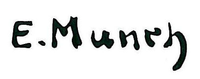 E. Munch